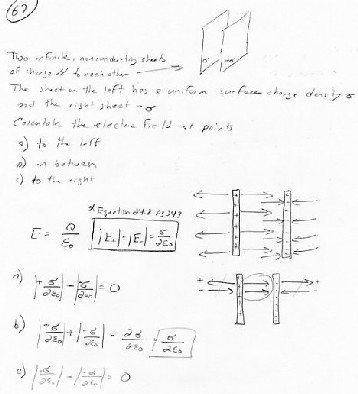 67
Two infinite, nonconducting sheets
of charge are ∥ to each other
The sheet on the left has a uniform surface charge density σ
and the right sheet -σ
Calculate the electric field at points
a) to the left
b) in between
c) to the right
* Equation 24.8 pg 749
|E_L| = |E_R| = σ/2ε₀
a) |+σ/2ε₀| - |-σ/2ε₀| = 0
b) |+σ/2ε₀| + |-σ/2ε₀| = 2σ/2ε₀
c) |σ/2ε₀| - |-σ/2ε₀| = 0